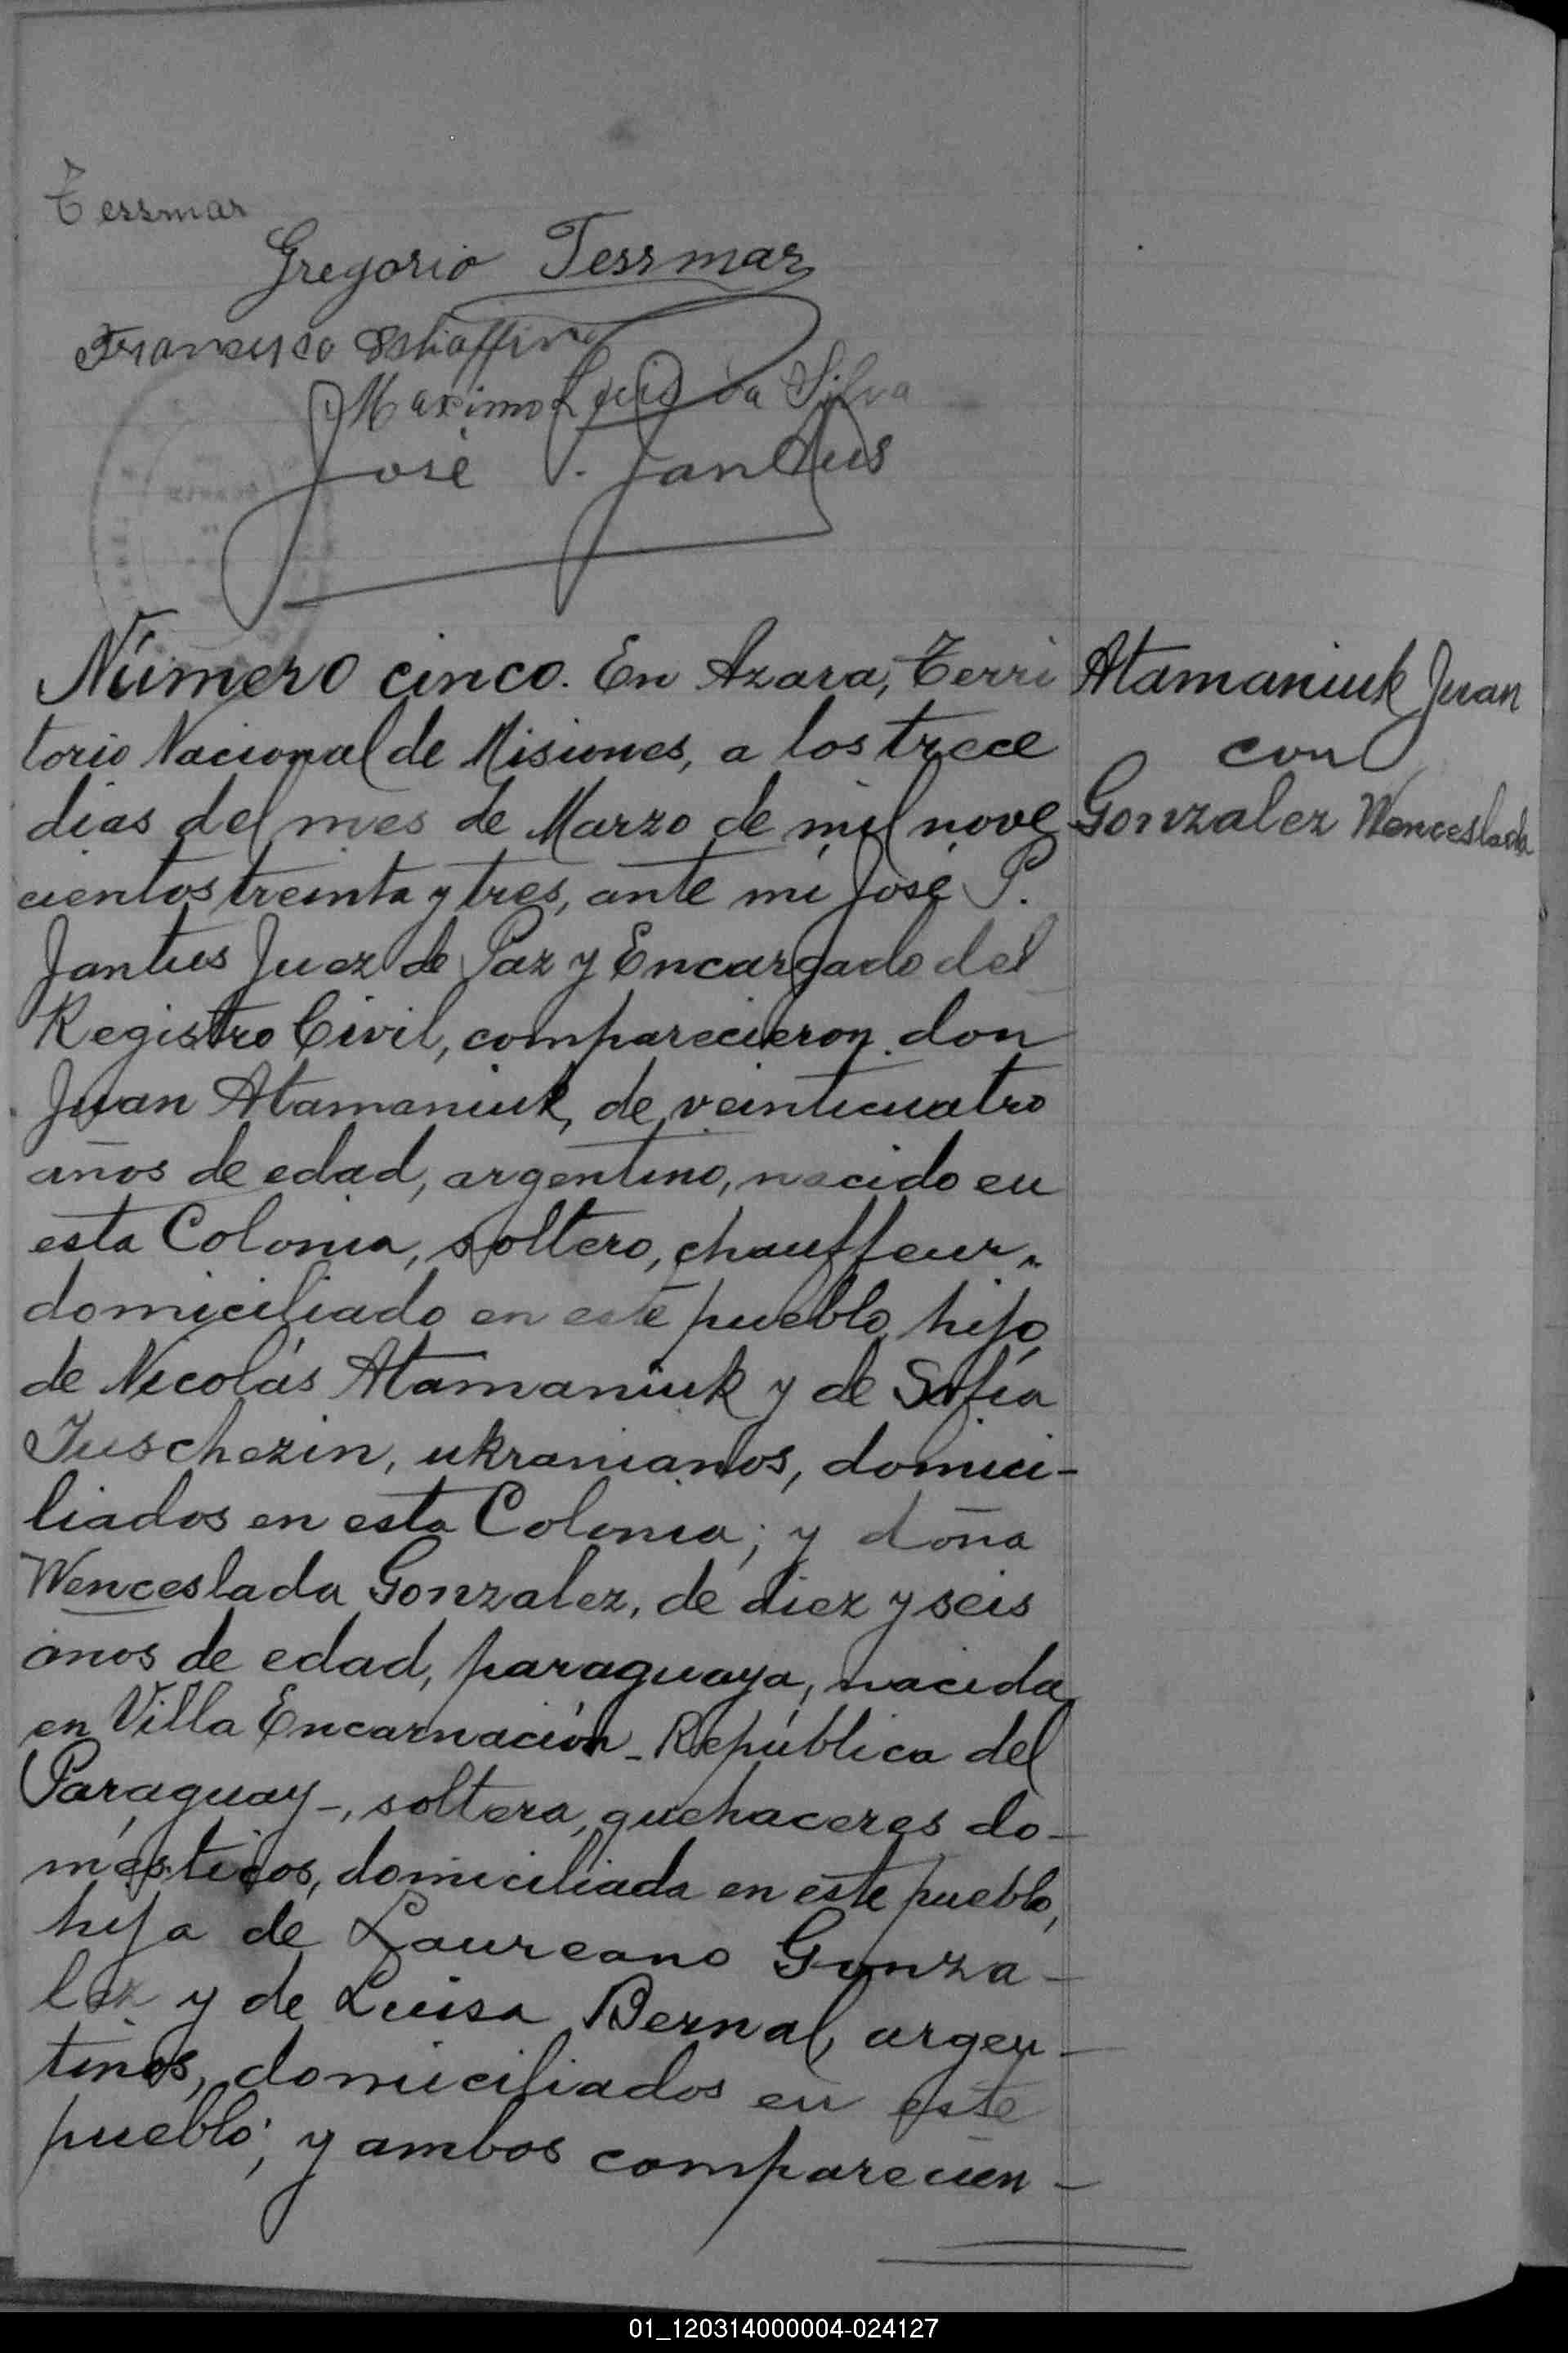 Tessmar
Gregorio Tessmar
Francisco Schiaffino
Maximo Luis da Silva
José P. Jantus
Número cinco. En Azara, Terri
torio Nacional de Misiones, a los trece
dias del mes de Marzo de mil nove
cientos treinta y tres, ante mi José P.
Jantus Juez de Paz y Encargado del
Registro Civil, comparecieron don
Juan Atamaniuk, de veinticuatro
años de edad, argentino, nacido en
esta Colonia, soltero, chauffeur,
domiciliado en este pueblo, hijo
de Nicolás Atamaniuk y de Sofía
Juschezin, ukranianos, domici-
liados en esta Colonia; y doña
Wenceslada Gonzalez, de diez y seis
años de edad, paraguaya, nacida
en Villa Encarnación - República del
Paraguay -, soltera, quehaceres do-
mésticos, domiciliada en este pueblo,
hija de Laureano Gonza-
lez y de Luisa Bernal, argen-
tinos, domiciliados en este
pueblo; y ambos comparecien-
Atamaniuk Juan
con
Gonzalez Wenceslada
01_120314000004-024127